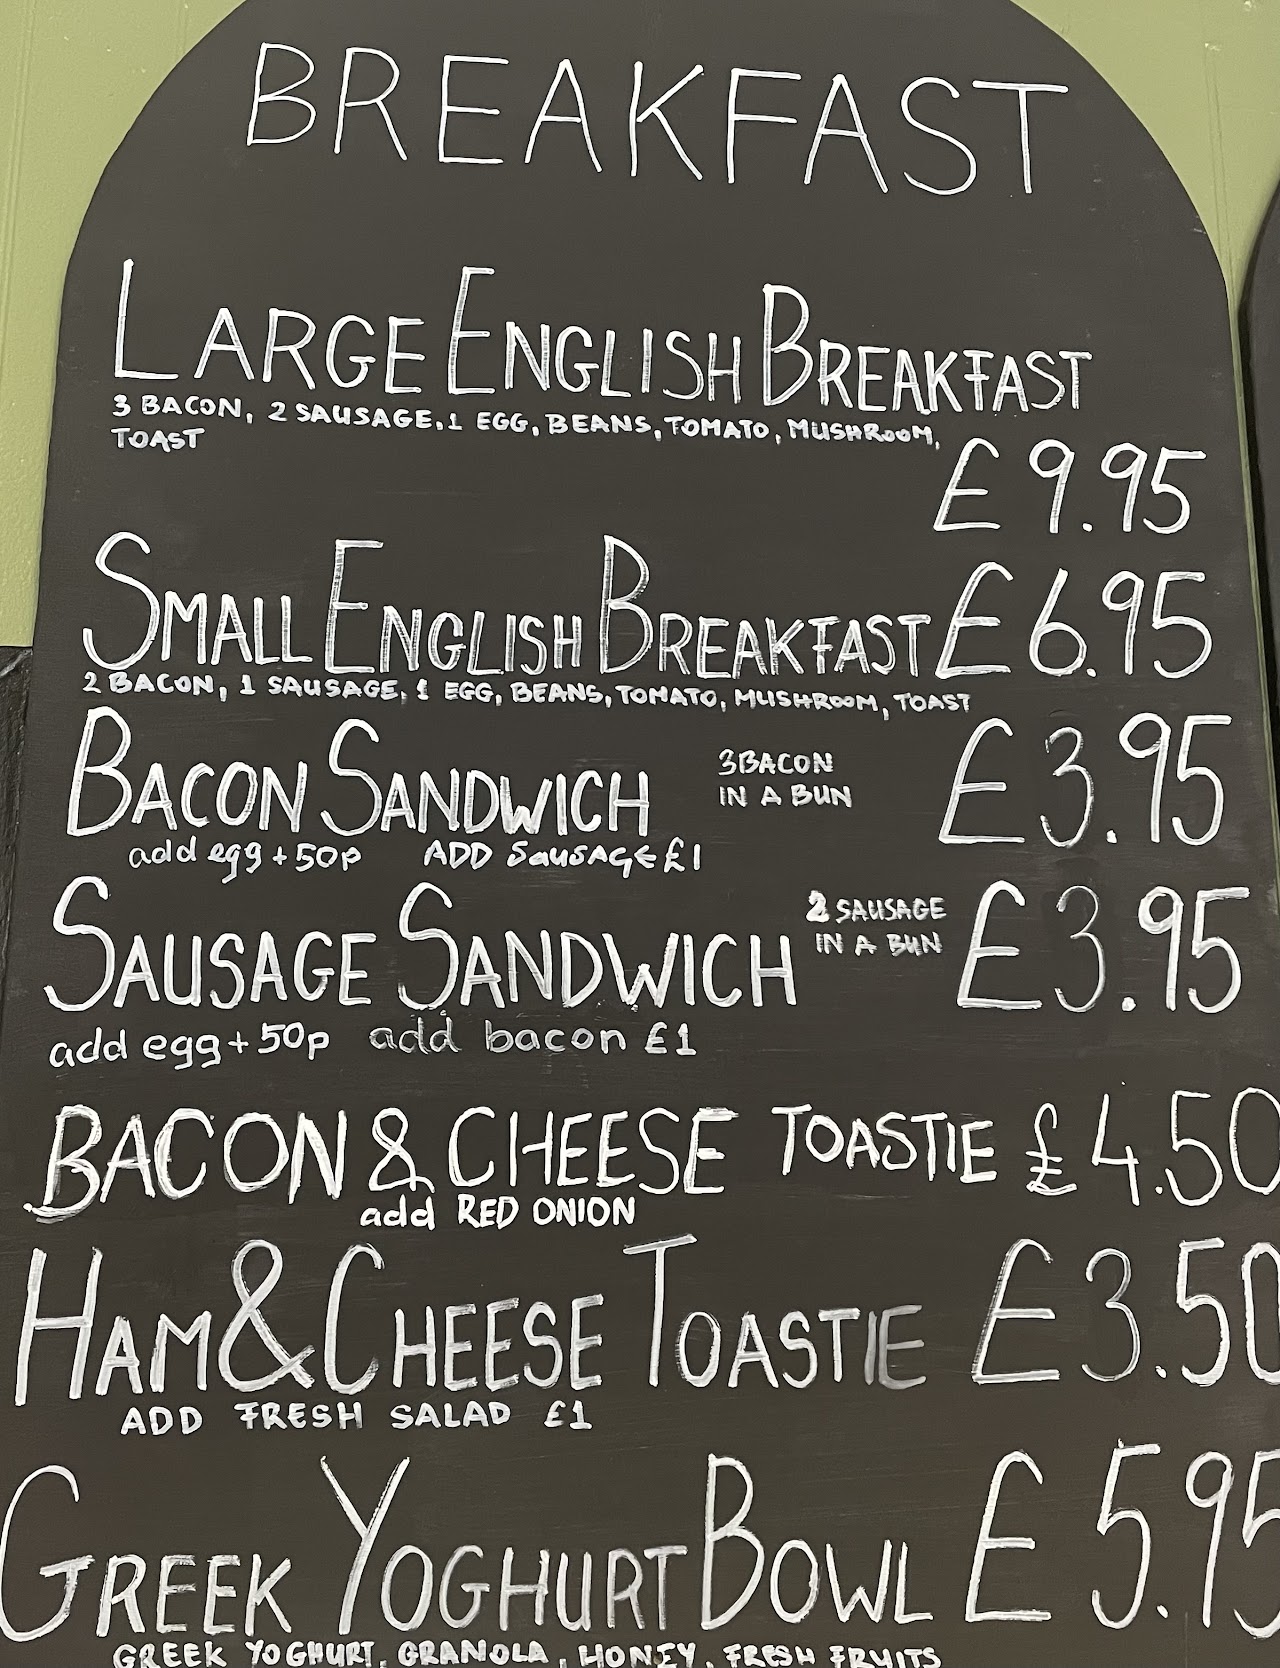 BREAKFAST
LARGE ENGLISH BREAKFAST
3 BACON, 2 SAUSAGE, 1 EGG, BEANS, TOMATO, MUSHROOM,
TOAST
£9.95
SMALL ENGLISH BREAKFAST £6.95
2 BACON, 1 SAUSAGE, 1 EGG, BEANS, TOMATO, MUSHROOM, TOAST
BACON SANDWICH 3 BACON IN A BUN £3.95
add egg + 50p ADD SAUSAGE £1
SAUSAGE SANDWICH 2 SAUSAGE IN A BUN £3.95
add egg + 50p add bacon £1
BACON & CHEESE TOASTIE £4.50
add RED ONION
HAM & CHEESE TOASTIE £3.50
ADD FRESH SALAD £1
GREEK YOGHURT BOWL £5.95
GREEK YOGHURT, GRANOLA, HONEY, FRESH FRUITS